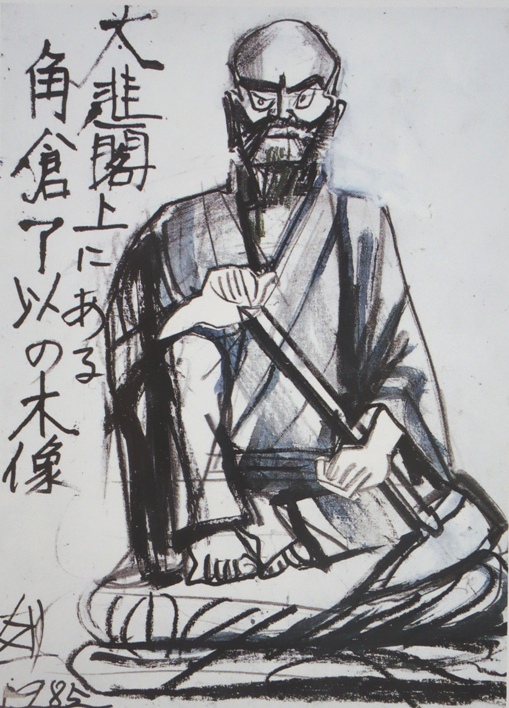 大悲閣上にある
角倉了以の木像
1985